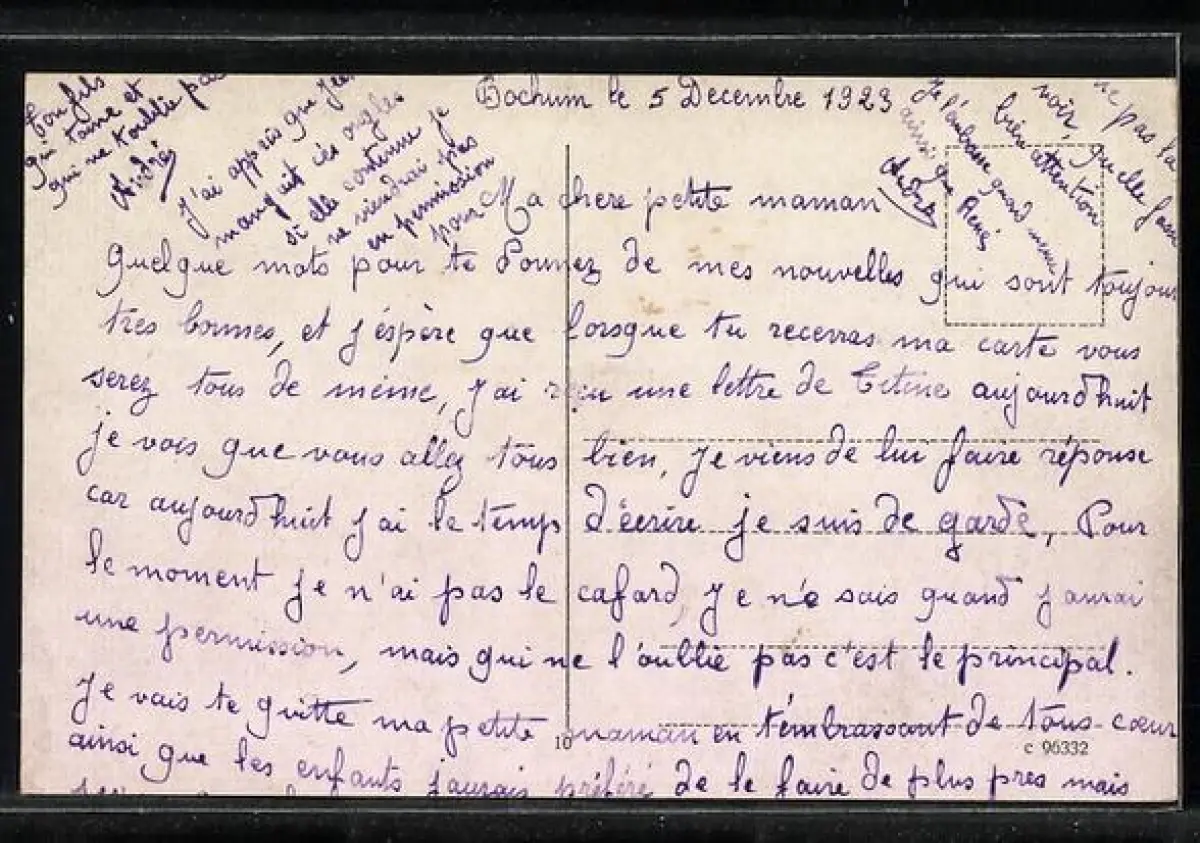 Bochum le 5 Decembre 1923
Ma chere petite maman
Quelque mots pour te Donnez de mes nouvelles qui sont toujour
tres bonnes, et j'éspère que lorsque tu recevras ma carte vous
serez tous de même, J'ai reçu une lettre de Titine aujourd'huit
je vois que vous allez tous bien, Je viens de lui faire réponse
car aujourd'huit j'ai le temp d'écrire je suis de garde, Pour
le moment je n'ai pas le cafard, Je ne sais quand j'aurai
une permission, mais qui ne l'oublie pas c'est le principal.
Je vais te quitte ma petite maman en t'embrassant de tous cœur
ainsi que les enfants j'aurais préféré de le faire de plus pres mais
bon fils
qui t'aime et
qui ne t'oublie pas
André
J'ai appris que
mangait ces ongles
si elle continue je
ne viendrai pas
en permission
pour
re pas la
voir, quelle fasse
bien attention
Je l'embrasse quand meme
ainsi que René
André
10
c 96332